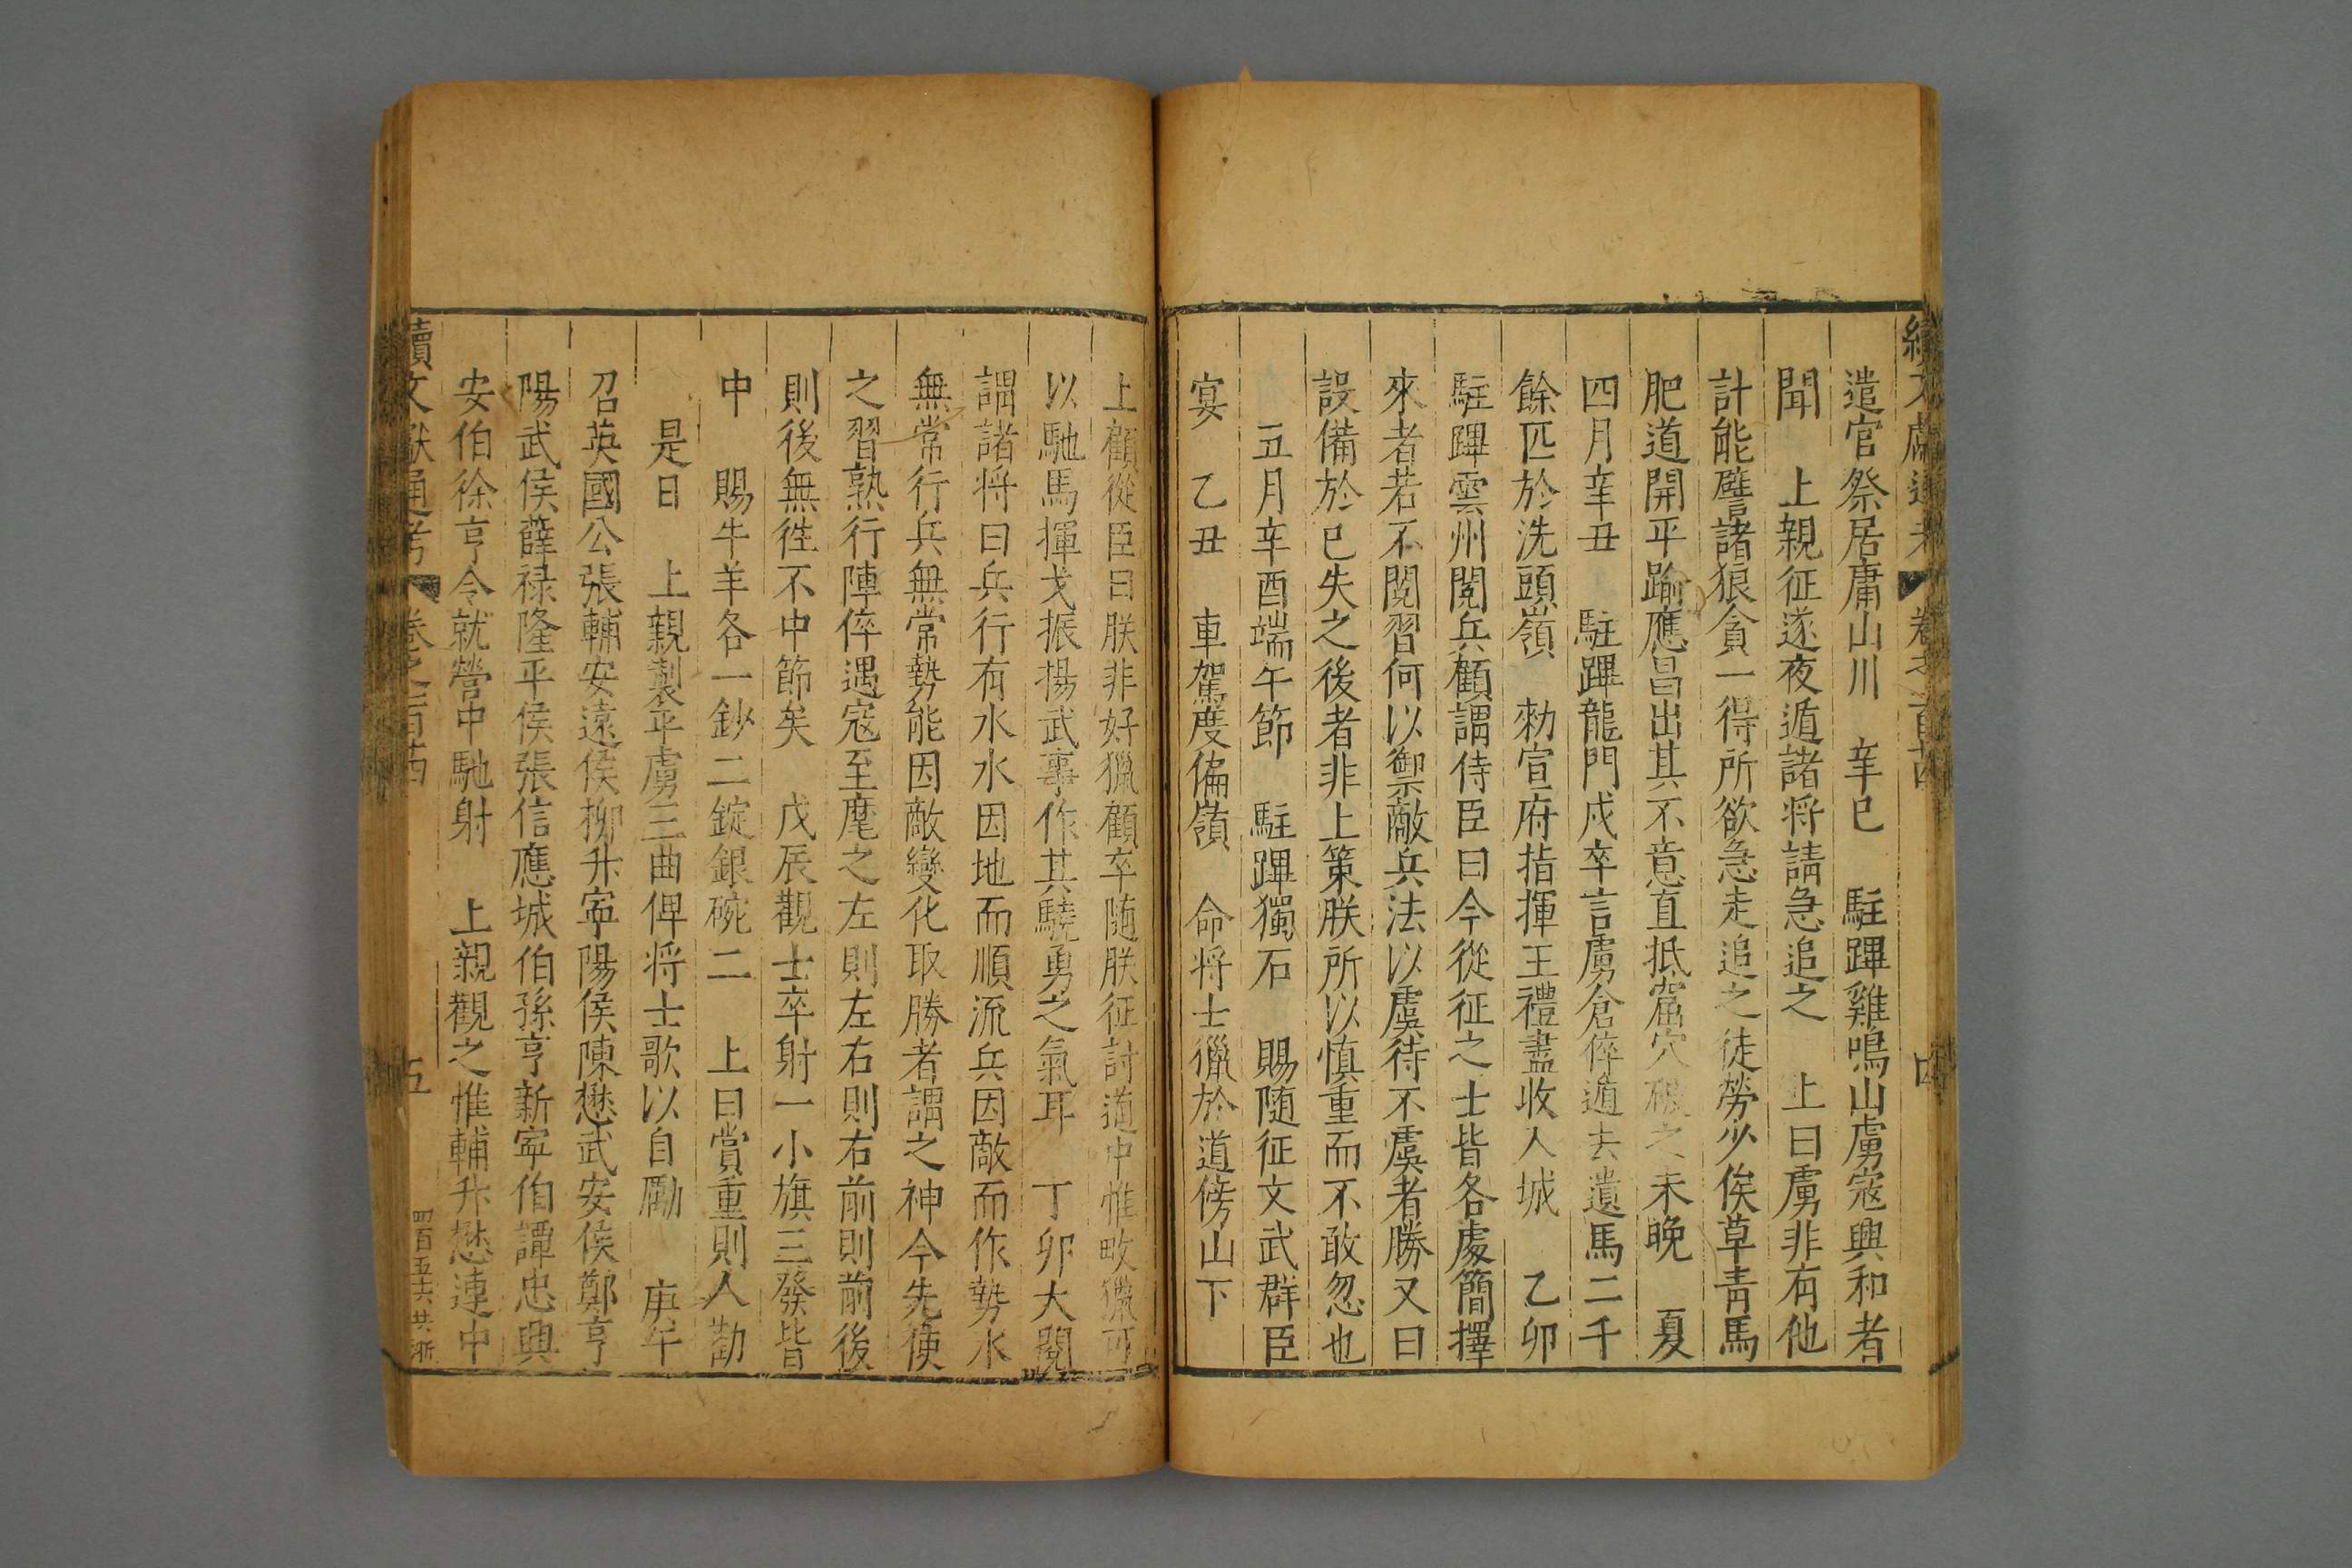 遣官祭居庸山川　辛巳　駐蹕雞鳴山虜寇興和者
聞　上親征遂夜遁諸將請急追之　上曰虜非有他
計能譬諸狼貪一得所欲急走追之徒勞少俟草青馬
肥道開平踰應昌出其不意直抵窟穴破之未晚　夏
四月辛丑　駐蹕龍門戍卒言虜倉倅遁去遺馬二千
餘匹於洗頭嶺　勑宣府指揮王禮盡收入城　乙卯
駐蹕雲州閱兵顧謂侍臣曰今從征之士皆各處簡擇
來者若不閱習何以禦敵兵法以虞待不虞者勝又曰
設備於已失之後者非上策朕所以慎重而不敢忽也
五月辛酉端午節　駐蹕獨石　賜隨征文武群臣
宴　乙丑　車駕度偏嶺　命將士獵於道傍山下
上顧從臣曰朕非好獵顧卒随朕征討道中惟畋獵可
以馳馬揮戈振揚武事作其驍勇之氣耳　丁卯大閱
謂諸将曰兵行有水水因地而順流兵因敵而作勢水
無常行兵無常勢能因敵變化取勝者謂之神今先使
之習熟行陣倅遇寇至麾之左則左右則右前則前後
則後無徃不中節矣　戊辰觀士卒射一小旗三發皆
中　賜牛羊各一鈔二錠銀碗二　上曰賞重則人勸
是日　上親製平虜三曲俾将士歌以自勵　庚午
召英國公張輔安遠侯柳升寧陽侯陳懋武安侯鄭亨
陽武侯薛禄隆平侯張信應城伯孫亨新寧伯譚忠興
安伯徐亨令就營中馳射　上親觀之惟輔升懋連中
續文獻通考　卷之二百十四　五